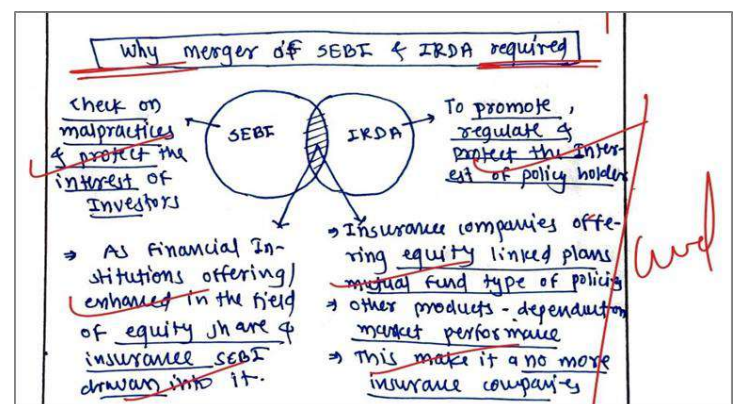 Why merger of SEBI & IRDA required
Check on
malpractices
& protect the
interest of
Investors
SEBI
IRDA
To promote,
regulate &
protect the Inter-
est of policy holder
⇒ As Financial In-
stitutions offering/
enhanced in the field
of equity share &
insurance SEBI
drawan into it.
⇒ Insurance companies offe-
ring equity linked plans
mutual fund type of policies
⇒ other products - dependent on
market performance
⇒ This make it a no more
insurance companies